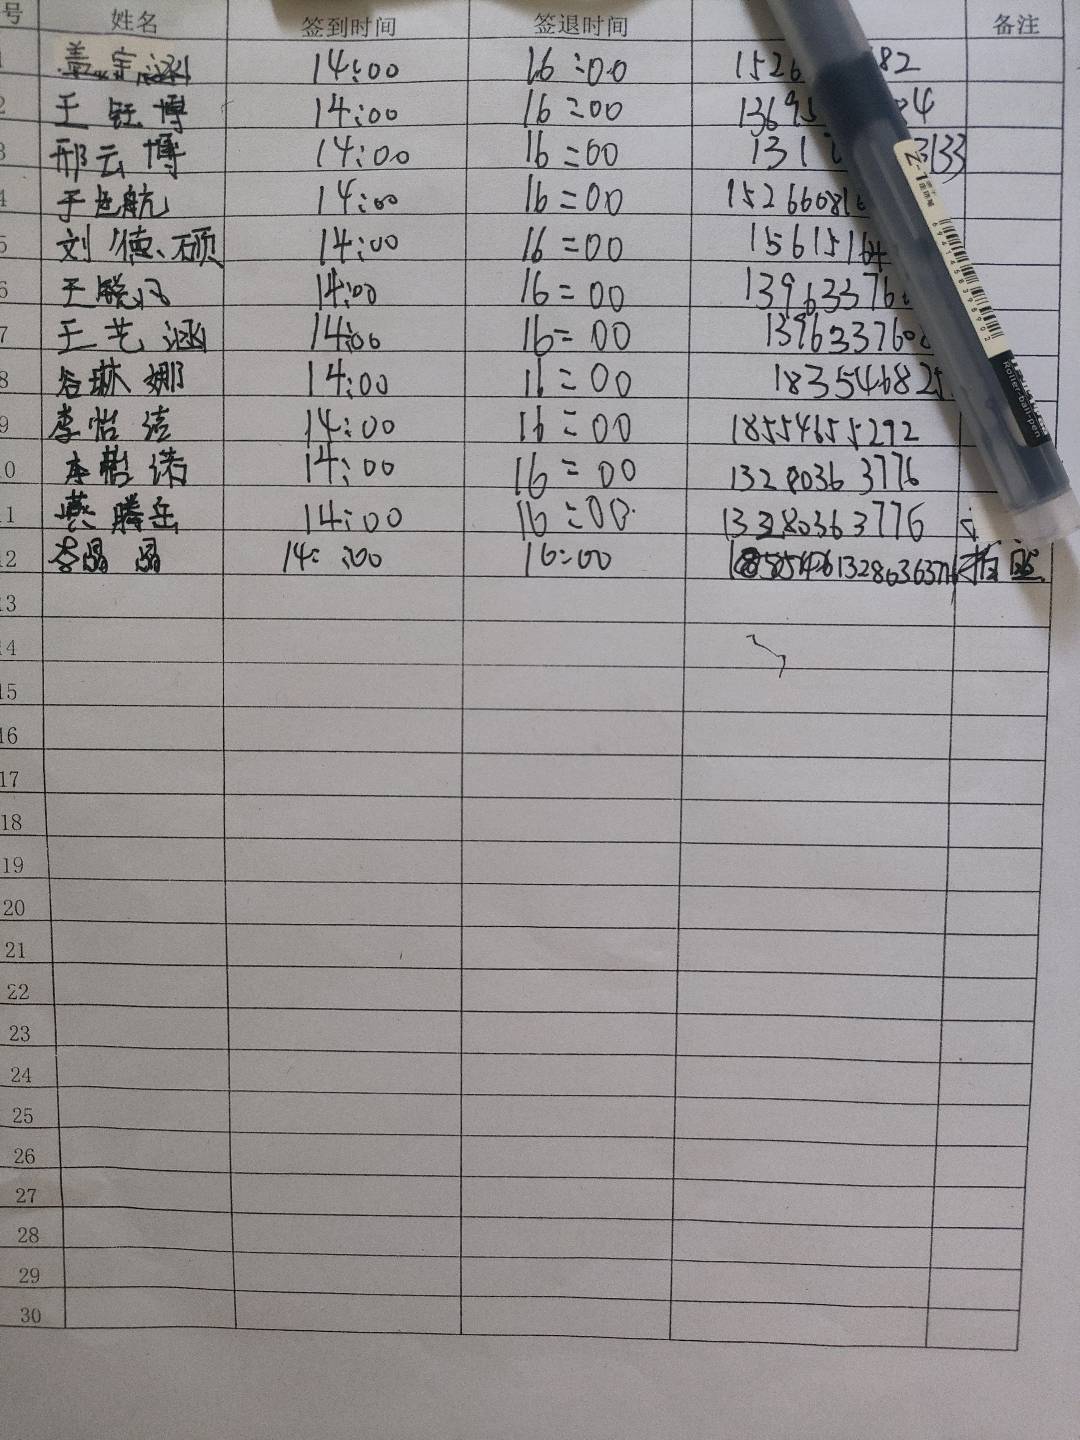 号 姓名 签到时间 签退时间 备注
盖宇涵 14:00 16:00 1526 82
2 王钰博 14:00 16:00 13695 4
3 邢云博 14:00 16:00 131 3133
4 于 航 14:00 16:00 15266081
5 刘德硕 14:00 16:00 1561516
6 王 14:00 16:00 13963376
7 王艺涵 14:00 16:00 139633760
8 谷琳娜 14:00 16:00 1835546825
9 李怡洁 14:00 16:00 18554655292
10 李怡诺 14:00 16:00 13280363776
11 燕腾岳 14:00 16:00 13280363776
12 李晶晶 14:00 16:00 13280363776
13
14
15
16
17
18
19
20
21
22
23
24
25
26
27
28
29
30
Z-1
6941458396902
Roller-ball-pen